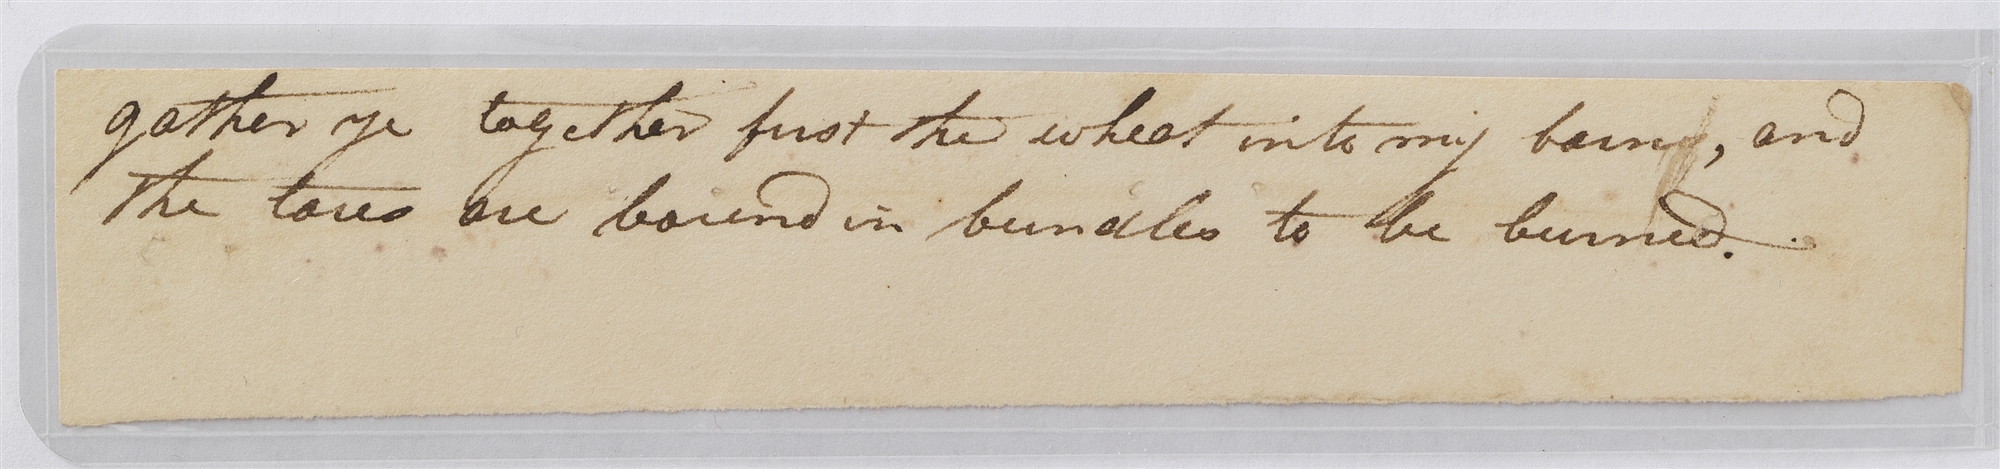 gather ye together first the wheat into my barn, and
the tares are bound in bundles to be burned.